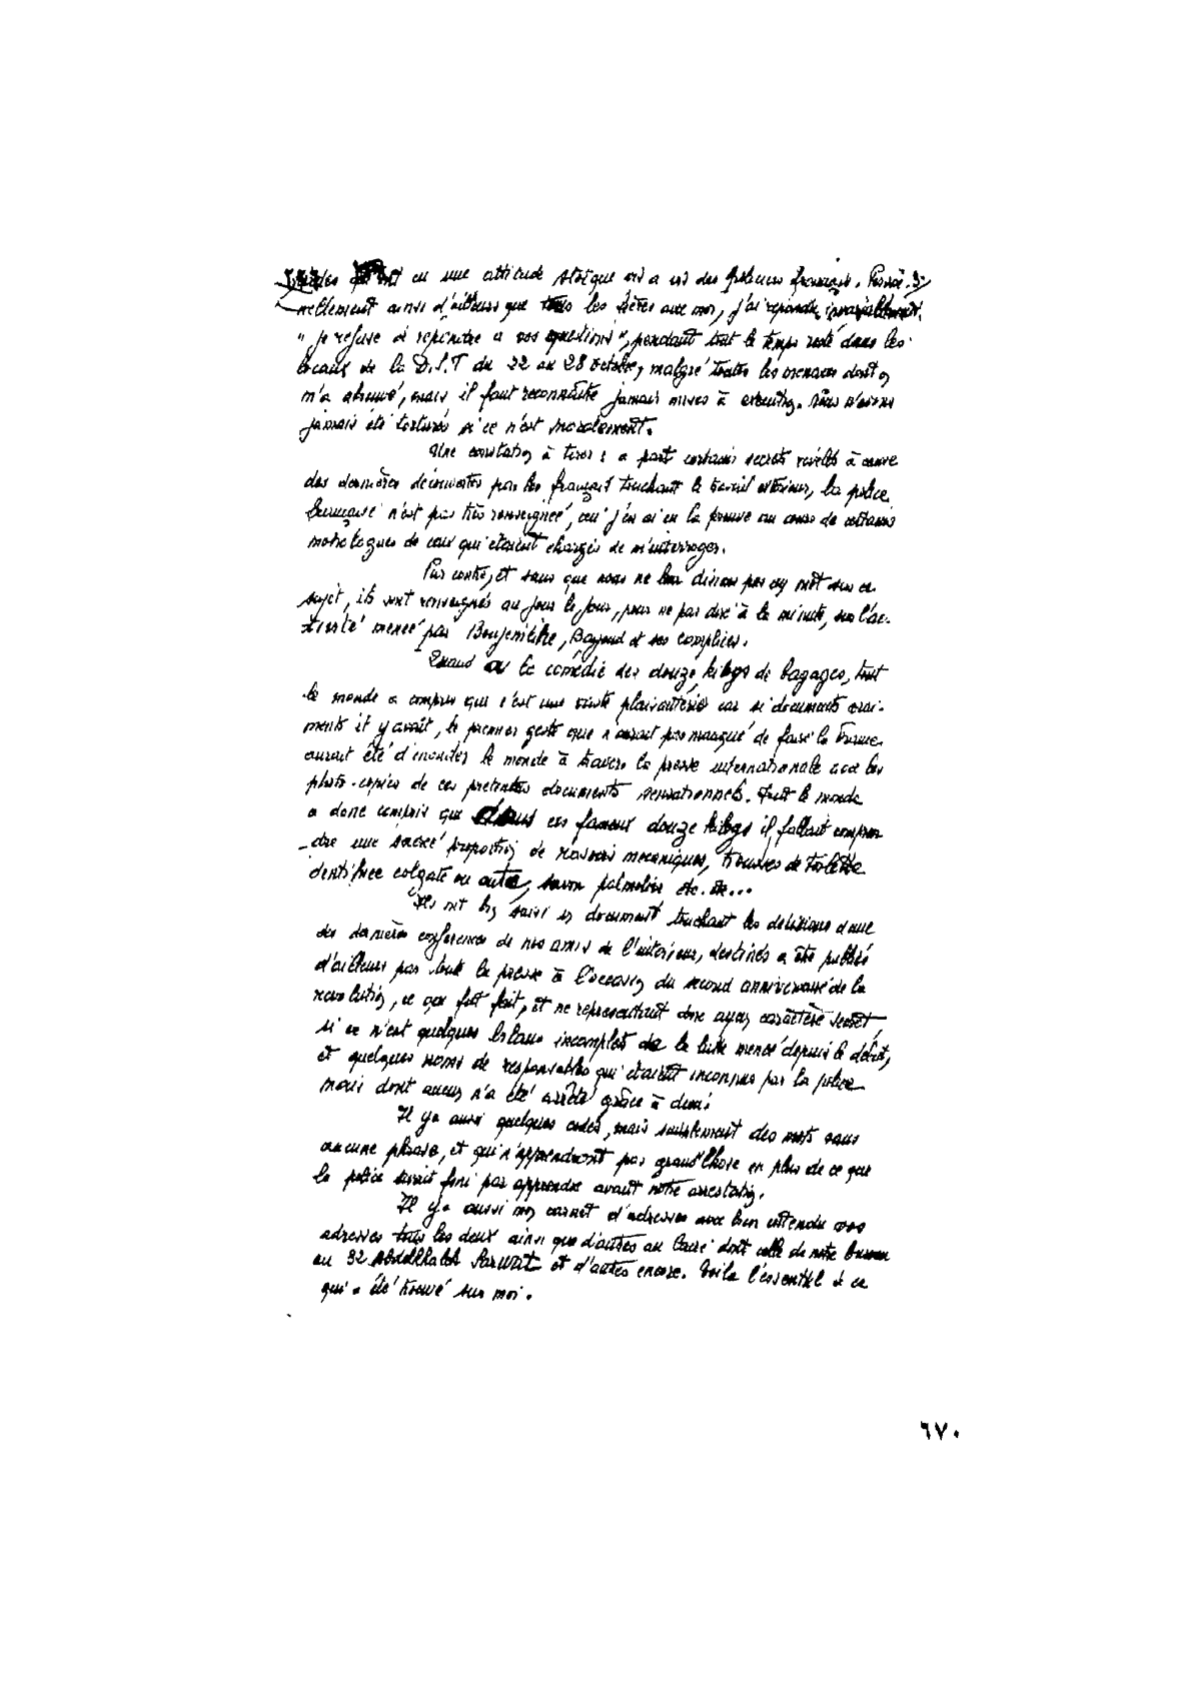 en une attitude stoïque vis a vis des policiers français. Person-
nellement ainsi d'ailleurs que tous les frères aux mor, j'ai repondu invariablement
"je refuse de repondre a vos questions", pendant tout le temps resté dans les
locaux de la D.S.T du 22 au 28 octobre, malgré toutes les menaces dont on
m'a abreuvé, mais il faut reconnaître jamais mises à execution. Nous n'avons
jamais été torturés si ce n'est moralement.
Une constatation à tirer : a part certains secrets revélés à cause
des dernières découvertes par les français touchant le travail exterieur, la police
française n'est pas très renseignée, car j'en ai eu la preuve au cours de certains
monologues de ceux qui étaient chargés de m'interroger.
Par contre, et sans que nous ne leur disions pas un mot sur ce
sujet, ils sont renseignés au jour le jour, pour ne pas dire à la minute, sur l'ac-
tivité menée par Boujenikhe, et ses complices.
Quand a la comédie des douze kilogs de bagages, tout
le monde a compris que c'est une vaste plaisanterie car si documents vrai-
ments il y avait, le premier geste que n'aurait pas manqué de faire la France
aurait été d'inonder le monde à travers la presse internationale avec les
photo-copies de ces pretendus documents sensationnels. Tout le monde
a donc compris que dans ces fameux douze kilogs il fallait compren-
dre une sacrée proportion de rasoirs mecaniques, trousses de toilette
dentifrice colgate ou autre, savon palmolive etc. etc...
Ils ont bien saisi un document touchant les decisions d'une
des dernières conferences de nos amis de l'interieur, destinés a être publiés
d'ailleurs par toute la presse à l'occasion du second anniversaire de la
revolution, ce qui fut fait, et ne representant donc aucun caractère secret,
si ce n'est quelques bilans incomplets de la lutte menée depuis le debut,
et quelques noms de responsables qui etaient inconnus par la police
mais dont aucun n'a été arrêté grâce à dieu.
Il y a aussi quelques codes, mais simplement des mots sans
aucune phrase, et qui n'apprendront pas grand'chose en plus de ce que
la police aurait fini par apprendre avant notre arrestation.
Il y a aussi mon carnet d'adresses avec bien entendu vos
adresses tous les deux ainsi que d'autres au Caire dont celle de notre bureau
au 32 Abdelkhalek Sarwat et d'autres encore. Voila l'essentiel de ce
qui a été trouvé sur moi.
٦٧٠